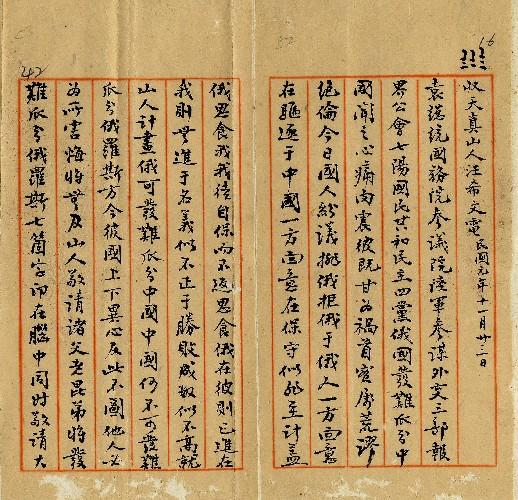 16
收天真山人汪希文電 民國元年十一月廿三日
袁總統國務院參議院陸軍參謀外交三部報
界公會七陽國民共和民主四黨俄國發難瓜分中
國聞之心痛而震彼既甘為禍首實屬荒謬
絕倫今日國人紛議挑俄拒俄于俄人一方面意
在驅逐于中國一方面意在保守似非至計蓋
242
俄思食我我徒自保而不返思食俄在彼則已進在
我則無進于名義似不正于勝敗成數似不高就
山人計畫俄可發難瓜分中國中國何不可發難
瓜分俄羅斯方今彼國上下異心及此不圖他人必
為所害悔將無及山人敬請諸父老昆弟將發
難瓜分俄羅斯七箇字印在腦中同時敬請大